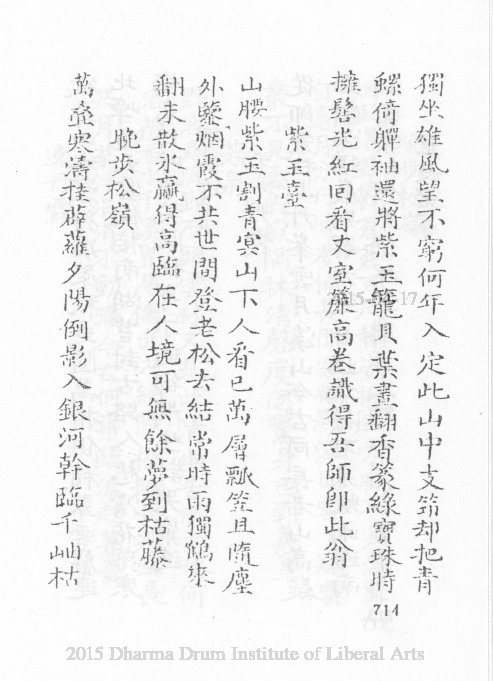 獨坐雄風望不窮何年入定此山中支筇却把青
螺倚嚲袖還將紫玉籠貝葉晝翻香篆綠寶珠時
擁髻光紅回看丈室簾高卷識得吾師即此翁
紫玉臺
山腰紫玉割青冥山下人看已萬層瓢笠且隨塵
外鑒烟霞不共世間登老松去結常時雨獨鶴來
翻未散氷贏得高臨在人境可無餘夢到枯藤
晚步松嶺
萬壑寒濤挂薜蘿夕陽倒影入銀河幹臨千岫枯
714
2015 Dharma Drum Institute of Liberal Arts